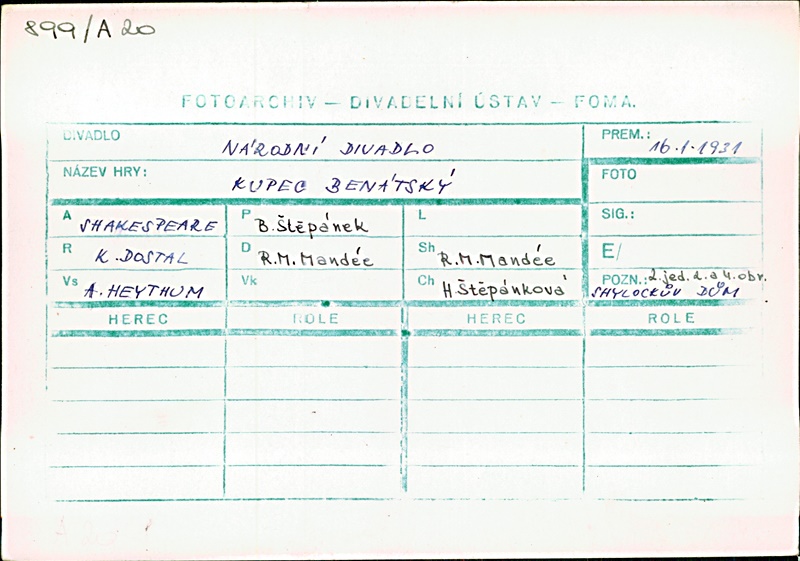 899/A 20
FOTOARCHIV — DIVADELNÍ ÚSTAV — FOMA.
DIVADLO NÁRODNÍ DIVADLO PREM.: 16.1.1931
NÁZEV HRY: KUPEC BENÁTSKÝ FOTO
A SHAKESPEARE P B. Štěpánek L SIG.:
R K. DOSTAL D R.M. Mandée Sh R.M. Mandée E/
Vs A. HEYTHUM Vk Ch H Štěpánková POZN.: 2. jed. 2. a 4. obr.
SHYLOCKŮV DŮM
HEREC ROLE HEREC ROLE